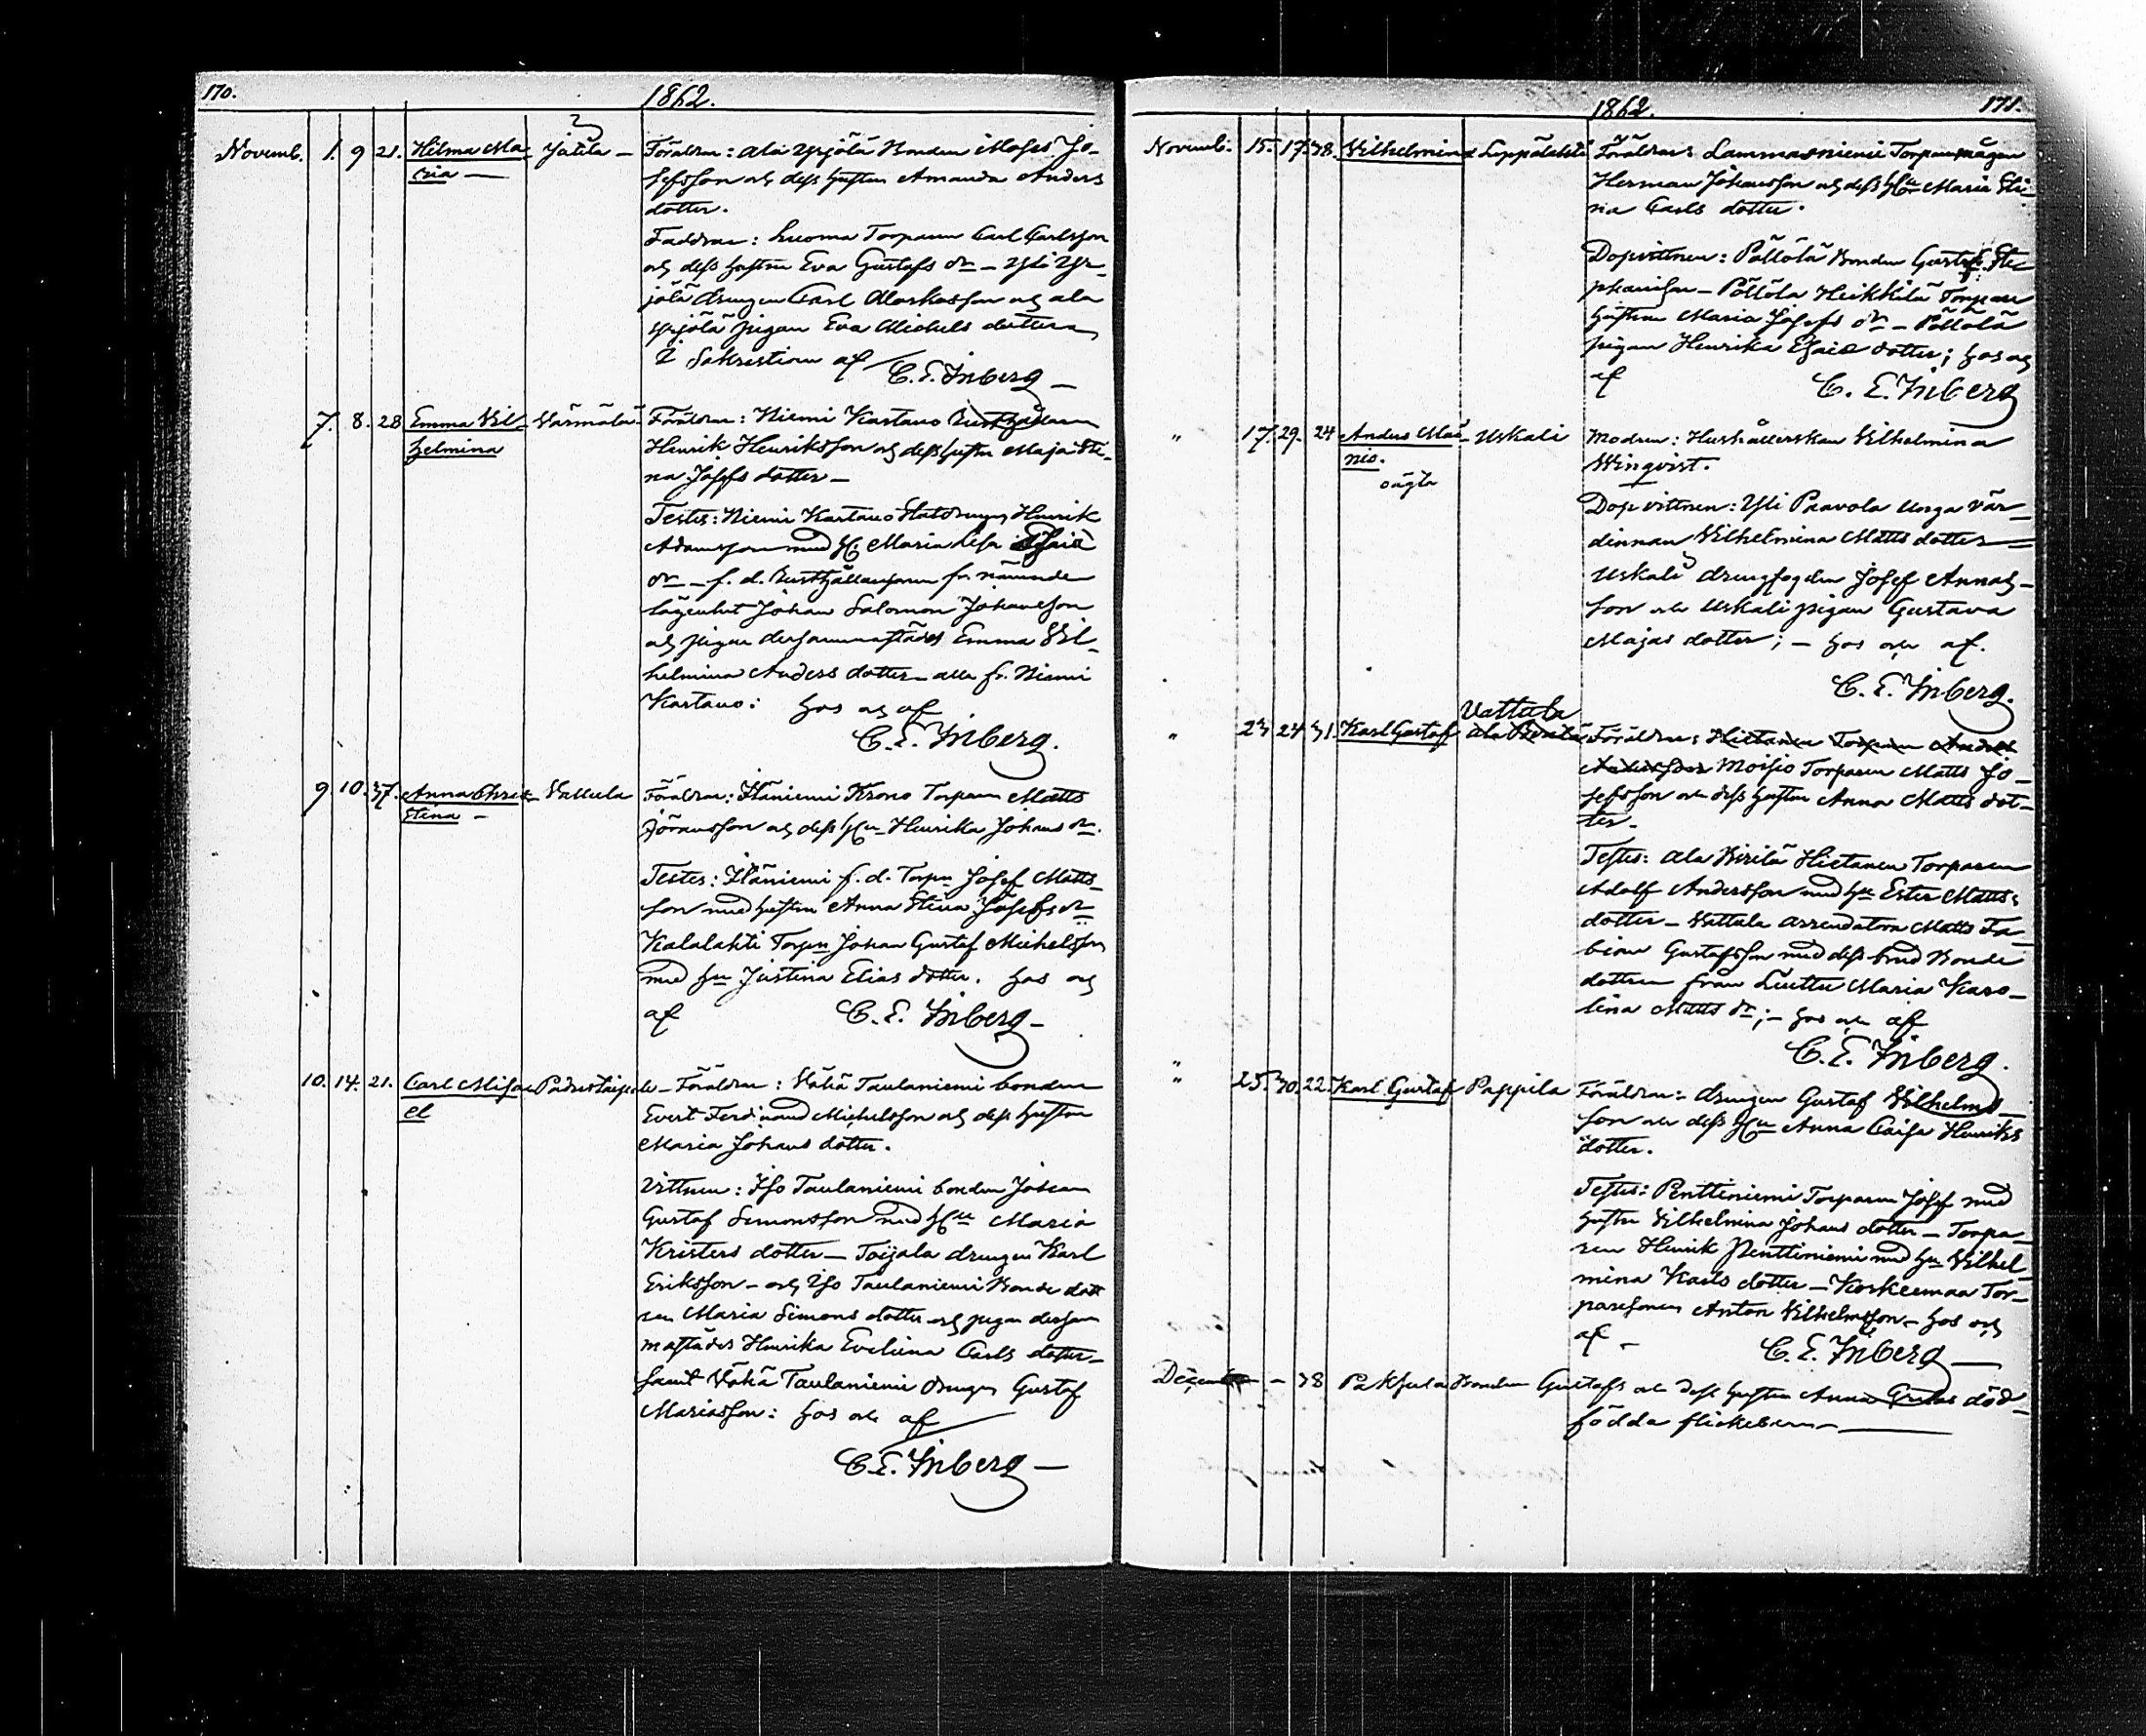 170.
1862.
Novemb. 1. 9 21. Hilma Ma- Jutila — Föräldrar: Ala Yrjölä Bonden Moses Jo-
ria — sefsson och dess hustru Amanda Anders
dotter.
Faddrar: Luoma Torparen Carl Carlsson
och dess hustru Eva Gustafs dr — Yli Yr-
jölä drengen Carl Markusson och ala
Yrjölä pigan Eva Michels dotter
i Sakristian af C. E. Inberg —
7. 8. 28 Emma Vil- Värmälä Föräldrar: Niemi Kartano Rusthållaren
helmina Henrik Henriksson och dess hustru Maja Sti-
na Josefs dotter —
Testes: Niemi Kartano Statdrengen Henrik
Adamsson med H. Maria Lisa Esaia
dr — f. d. Rusthållaren fr. nämnde
lägenhet Johan Salomon Johansson
och pigan dersammastädes Emma Vil-
helmina Anders dotter — alla fr. Niemi
Kartano: hos och af
C. E. Inberg.
9. 10. 37. Anna Chris- Vattula Föräldrar: Itäniemi Krono Torparen Matts
tina — Jöransson och dess Hu Henrika Johans dr.
Testes: Itäniemi f. d. Torpn Josef Matts-
son med hustru Anna Stina Josefs dr
Kalalahti Torpn Johan Gustaf Michelsson
med Hu Justina Elias dotter. hos och
af C. E. Inberg —
10. 14. 21. Carl Mika- Padustaipale — Föräldrar: Vähä Taulaniemi bonden
el Evert Ferdinand Michelsson och dess hustru
Maria Johans dotter.
Vittnen: Iso Taulaniemi bonden Johan
Gustaf Simonsson med Hu Maria
Kristers dotter — Toijala drengen Karl
Eriksson — och Iso Taulaniemi Bonde dott
ren Maria Simons dotter och pigan dersam
mastädes Henrika Evelina Carls dotter —
samt Vähä Taulaniemi drengen Gustaf
Mariasson: hos och af
C. E. Inberg —
1862.
171.
Novemb. 15. 17. 38. Vilhelmina Leppälahti Föräldrar: Lammasniemi Torparmågen
Herman Johansson och dess Hu Maria Sti-
na Carls dotter.
Dopvittnen: Pöllölä Bonden Gustaf Ste-
phansson — Pöllölä Heikkilä Torpare
hustrun Maria Josefs dr — Pöllölä
pigan Henrika Esaie dotter; hos och
af C. E. Inberg
" 17. 29. 24 Anders Mag- Uskali Modren: Hushållerskan Vilhelmina
nus. Winqvist.
oägta
Dopvittnen: Yli Paavola unga vär-
dinnan Vilhelmina Matts dotter —
Uskali drengfogden Josef Annas-
son och Uskali pigan Gustava
Majas dotter; — hos och af.
C. E. Inberg.
Vattula
" 23 24 31. Karl Gustaf Föräldrar: Hietanen Torparen
Moisio Torparen Matts Jo-
sefsson och dess hustru Anna Matts dot-
ter.
Testes: Ala Pirilä Hietanen Torparen
Adolf Andersson med Hu Ester Matts
dotter — Vattula arrendatorn Matts Fa-
bian Gustafsson med dess brud Bonde
dottren från Liuttu Maria Karo-
lina Matts dr; — hos och af
C. E. Inberg.
" 25. 30. 22. Karl Gustaf Pappila Föräldrar: Drengen Gustaf Vilhelms-
son och dess Hu Anna Caisa Henriks
dotter.
Testes: Penttiniemi Torparen Josef med
hustru Vilhelmina Johans dotter — Torpa-
ren Henrik Penttiniemi med Hu Vilhel-
mina Karls dotter — Korkeemaa Tor-
paresonen Anton Vilhelmsson — hos och
af — C. E. Inberg —
Decemb — 38 Pakkula Bonden Gustafs och dess hustrus Anna Gretas död-
födda flickebarn —